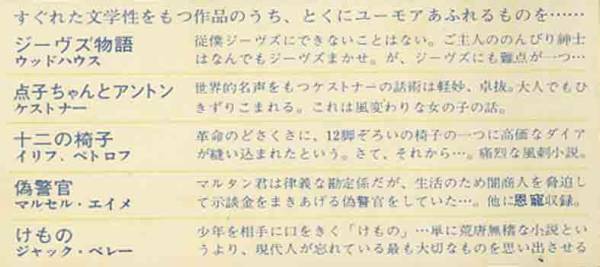 すぐれた文学性をもつ作品のうち、とくにユーモアあふれるものを……
ジーヴズ物語
ウッドハウス
従僕ジーヴズにできないことはない。ご主人ののんびり紳士
はなんでもジーヴズまかせ。が、ジーヴズにも難点が一つ…
点子ちゃんとアントン
ケストナー
世界的名声をもつケストナーの話術は軽妙、卓抜。大人でもひ
きずりこまれる。これは風変わりな女の子の話。
十二の椅子
イリフ、ペトロフ
革命のどさくさに、12脚ぞろいの椅子の一つに高価なダイア
が縫い込まれたという。さて、それから…。痛烈な風刺小説。
偽警官
マルセル・エイメ
マルタン君は律義な勘定係だが、生活のため闇商人を脅迫し
て示談金をまきあげる偽警官をしていた…。他に恩寵収録。
けもの
ジャック・ペレー
少年を相手に口をきく「けもの」…単に荒唐無稽な小説とい
うより、現代人が忘れている最も大切なものを思い出させる